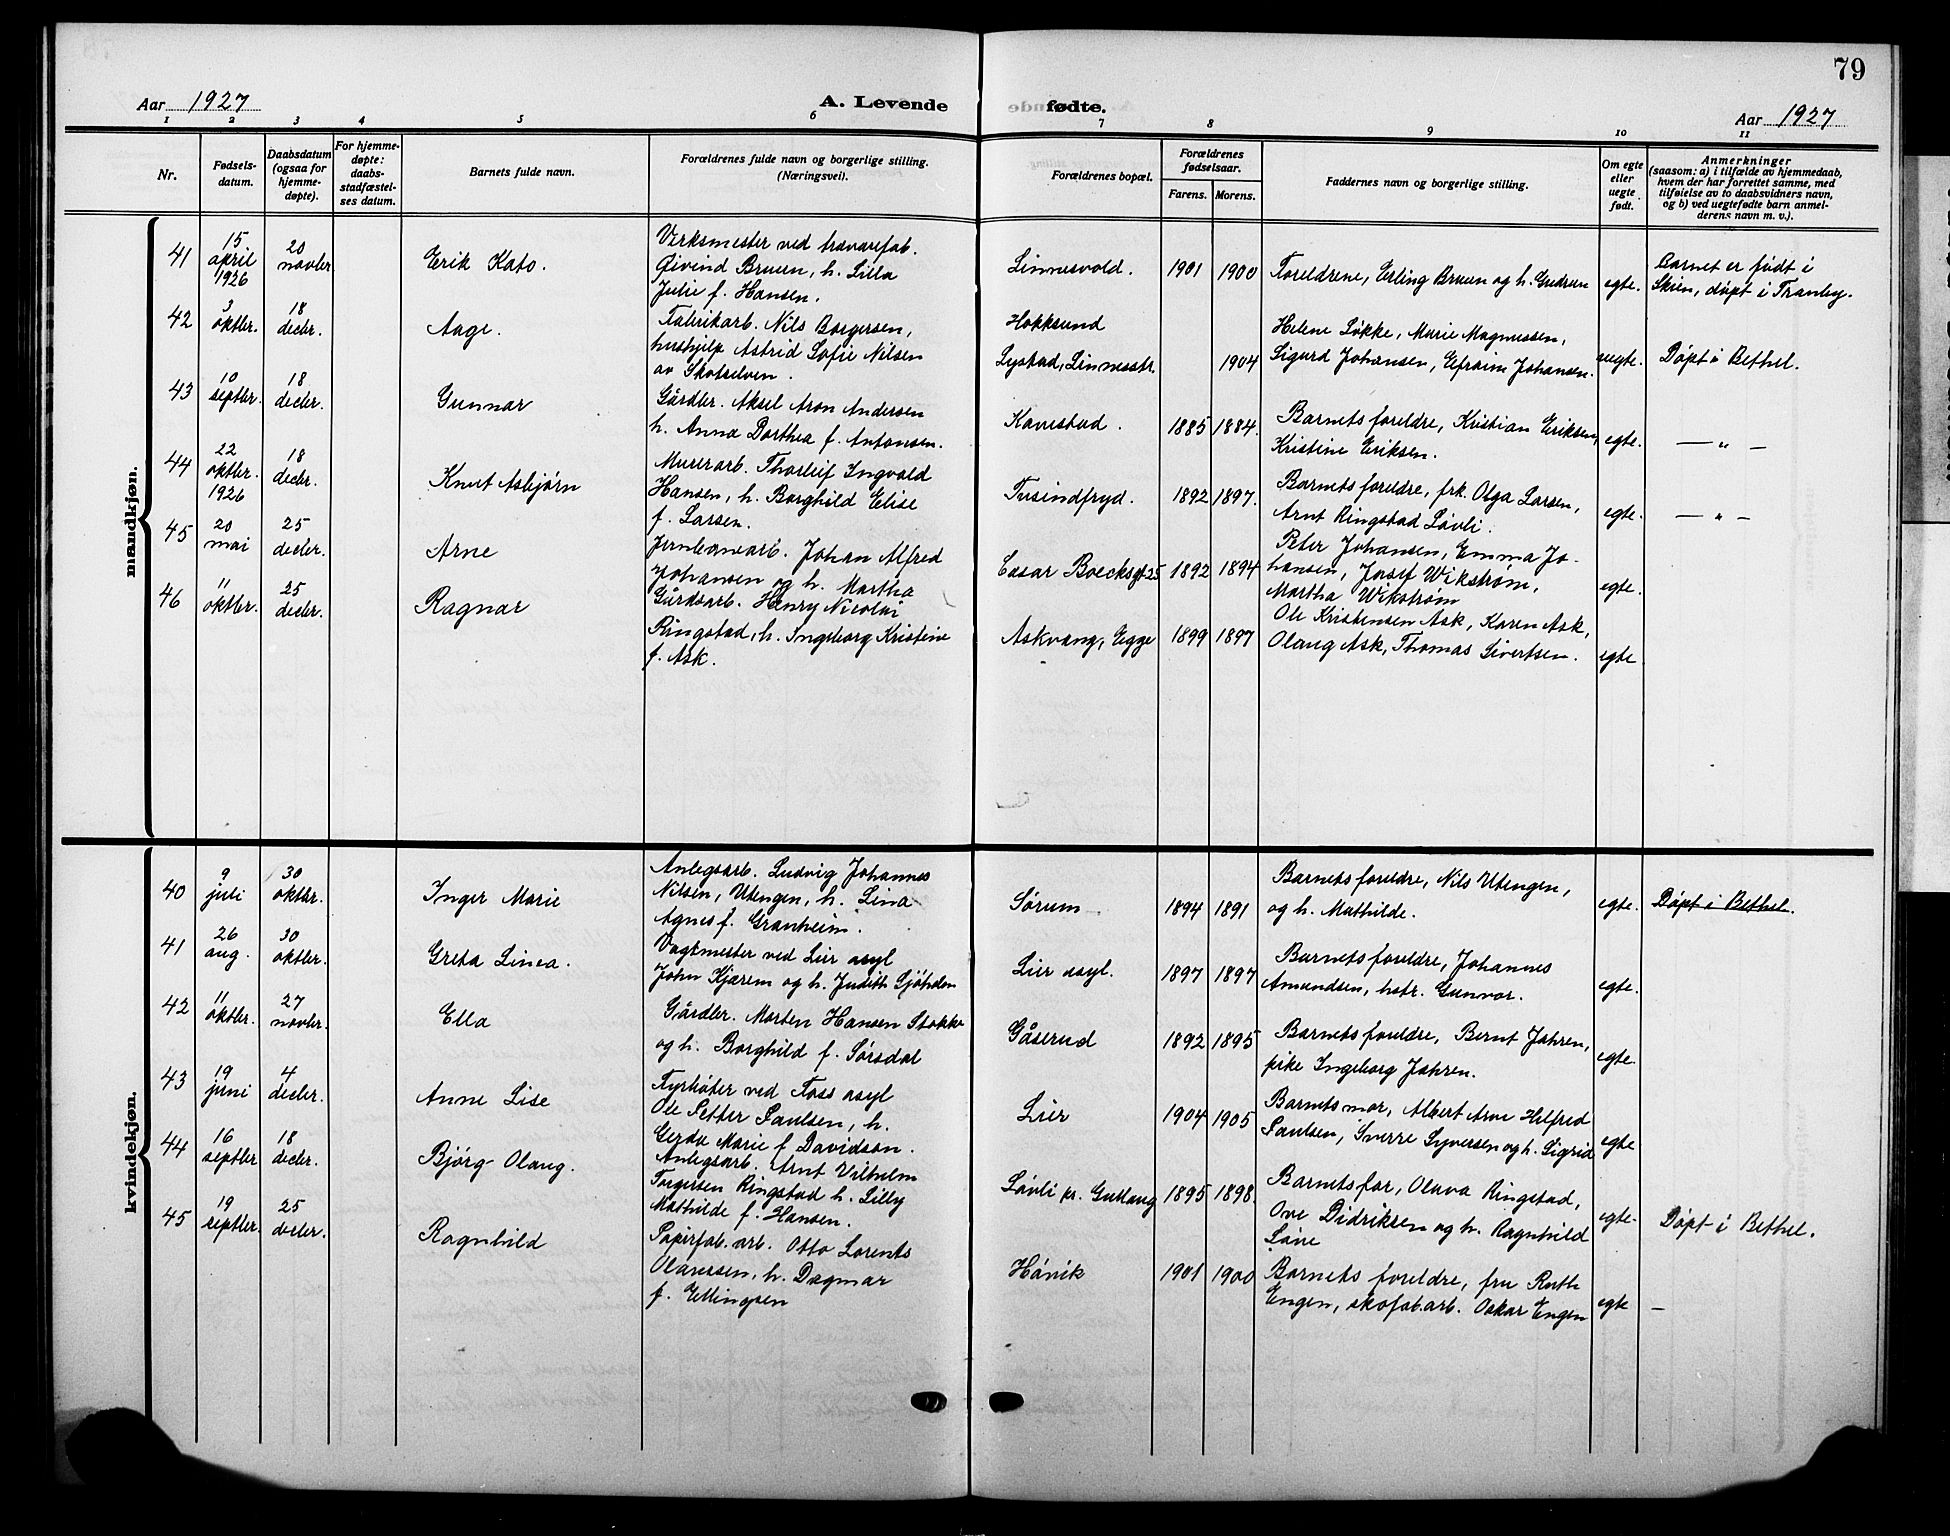 79
Aar 1927
A. Levende fødte.
Aar 1927
1 2 3 4 5 6 7 8 9 10 11
Nr.
Fødsels-
datum.
Daabsdatum
(ogsaa for
hjemme-
døpte).
For hjemme-
døpte:
daabs-
stadfæstel-
ses datum.
Barnets fulde navn.
Forældrenes fulde navn og borgerlige stilling.
(Næringsvei).
Forældrenes bopæl.
Forældrenes
fødselsaar.
Farens. Morens.
Faddernes navn og borgerlige stilling.
Om egte
eller
uegte
født.
Anmerkninger
(saasom: a) i tilfælde av hjemmedaab,
hvem der har forrettet samme, med
tilføielse av to daabsvidners navn,
og b) ved uegtefødte barn anmel-
derens navn m. v.).
mandkjøn.
41
15
april
1926
20
novbr.
Erik Kato.
Verksmester ved trævarefab.
Øivind Bruun, h. Lilla
Julie f. Hansen.
Linnesvold.
1901 1900
Foreldrene, Erling Bruun og h. Gudrun
egte.
Barnet er født i
Skien, døpt i Tranby.
42
3
oktbr.
18
decbr.
Aage.
Fabrikarb. Nils Borgersen,
hushjelp Astrid Sofie Nilsen
av Skotselven.
Hokksund
Lystad, Linnesstr.
1904
Helene Løkke, Marie Magnussen,
Sigurd Johansen, Efraim Johansen.
uegte.
Døpt i Bethel.
43
10
septbr.
18
decbr.
Gunnar
Gårdbr. Aksel Aron Andersen
h. Anna Dorthea f. Antonsen.
Kovestad.
1885 1884.
Barnets foreldre, Kristian Eriksen,
Kristine Eriksen.
egte.
— " —
44
22
oktbr.
1926
18
decbr.
Knut Asbjørn
Murerarb. Thorleif Ingvald
Hansen, h. Borghild Elise
f. Larsen.
Tusindfryd.
1892 1897.
Barnets foreldre, frk. Olga Larsen,
Arnt Ringstad Løvli.
egte.
— " —
45
20
mai
25
decbr.
Arne
Jernbanearb. Johan Alfred
Johansen og h. Martha
Cæsar Boecksgt 25
1892 1894
Peter Johansen, Emma Jo-
hansen, Josef Wikstrøm,
Martha Wikstrøm
egte.
46
11
oktbr.
25
decbr.
Ragnar
Gårdsarb. Henry Nicolai
Ringstad, h. Ingeborg Kristine
f. Ask.
Askvang, Egge
1899 1897
Ole Kristensen Ask, Karen Ask,
Olaug Ask, Thomas Sivertsen.
egte
kvindekjøn.
40
9
juli
30
oktbr.
Inger Marie
Anlegsarb. Ludvig Johannes
Nilsen, Utengen, h. Lina
Agnes f. Granheim.
Sørum
1894 1891
Barnets foreldre, Nils Utengen,
og h. Mathilde.
egte.
Døpt i Bethel.
41
26
aug.
30
oktbr.
Greta Linea.
Vagtmester ved Lier asyl
John Kjærem og h. Judith Sjöhden
Lier asyl.
1897 1897
Barnets foreldre, Johannes
Amundsen, hstr. Gunvor.
egte.
42
11
oktbr.
27
novbr.
Ella
Gårdbr. Morten Hansen Stokke
og h. Borghild f. Sørsdal
Gåserud
1892 1895
Barnets foreldre, Bernt Jahren,
pike Ingeborg Jahren.
egte.
43
19
juni
4
decbr.
Anne Lise
Fyrbøter ved Foss asyl
Ole Petter Paulsen, h.
Gerda Marie f. Davidson.
Lier
1904 1905
Barnets mor, Albert Arne Helfred
Paulsen, Sverre Syversen og h. Sigrid
egte
44
16
septbr
18
decbr.
Bjørg Olaug.
Anlegsarb. Arnt Vilhelm
Torgersen Ringstad h. Lilly
Mathilde f. Hansen.
Løvli pr. Gullaug
1895 1898.
Barnets far, Olava Ringstad,
Ove Didriksen og h. Ragnhild
egte.
Døpt i Bethel.
45
19
septbr.
25
decbr.
Ragnhild
Papirfab. arb. Otto Lorents
Olavessen, h. Dagmar
f. Ellingsen
Håvik
1901 1900
Barnets foreldre, fru Ruth
Engen, skofab.arb. Oskar Engen
egte
—